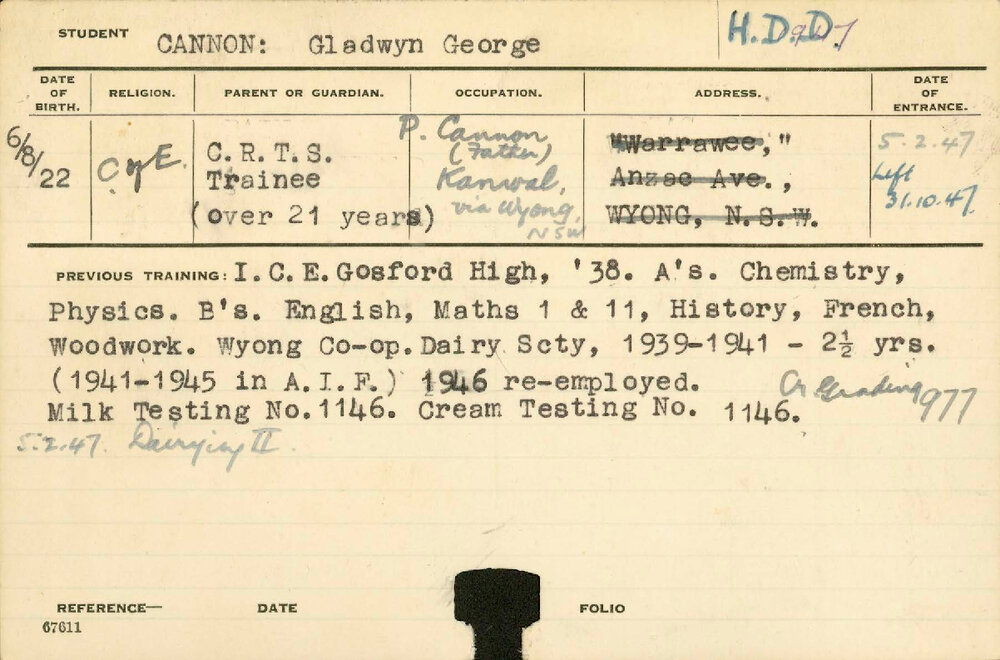 STUDENT CANNON: Gladwyn George H.D.D. 
DATE OF BIRTH. RELIGION. PARENT OR GUARDIAN. OCCUPATION. ADDRESS. DATE OF ENTRANCE.
6/8/22 C of E. C.R.T.S. P. Cannon "Warrawee," 5.2.47
Trainee (Father) Anzac Ave., Left
(over 21 years) Kanwal, WYONG, N.S.W. 31.10.47.
via Wyong,
NSW
PREVIOUS TRAINING: I.C.E. Gosford High, '38. A's. Chemistry,
Physics. B's. English, Maths 1 & 11, History, French,
Woodwork. Wyong Co-op. Dairy Scty, 1939-1941 - 2½ yrs.
(1941-1945 in A.I.F.) 1946 re-employed. Cr Grading 977
Milk Testing No. 1146. Cream Testing No. 1146.
5.2.47. Dairying II.
REFERENCE— DATE FOLIO
67611